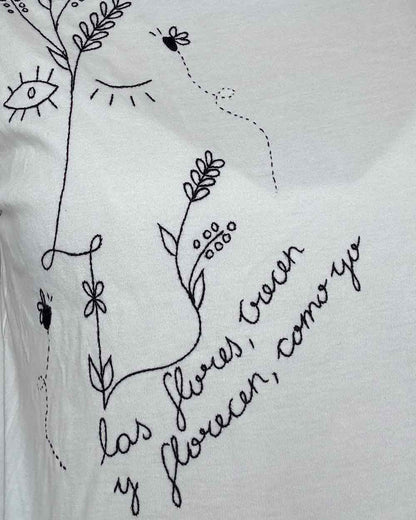 las flores, crecen
y florecen, como yo